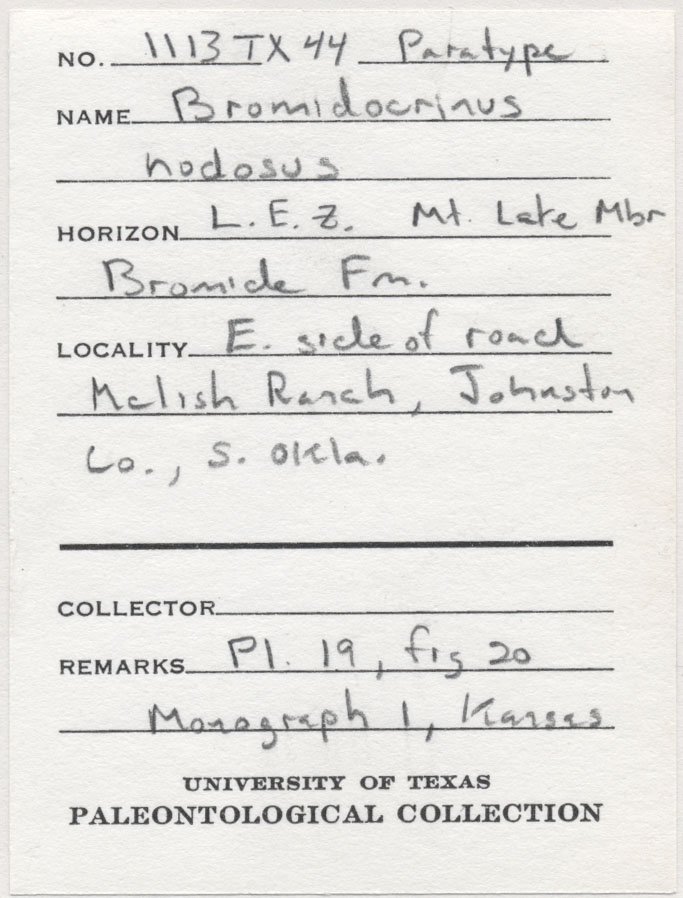 NO. 1113TX44 Paratype
NAME Bromidocrinus
nodosus
HORIZON L.E.Z. Mt. Lake Mbr
Bromide Fm.
LOCALITY E. side of road
Mclish Ranch, Johnston
Co., S. Okla.
COLLECTOR
REMARKS Pl. 19, fig 20
Monograph 1, Kansas
UNIVERSITY OF TEXAS
PALEONTOLOGICAL COLLECTION